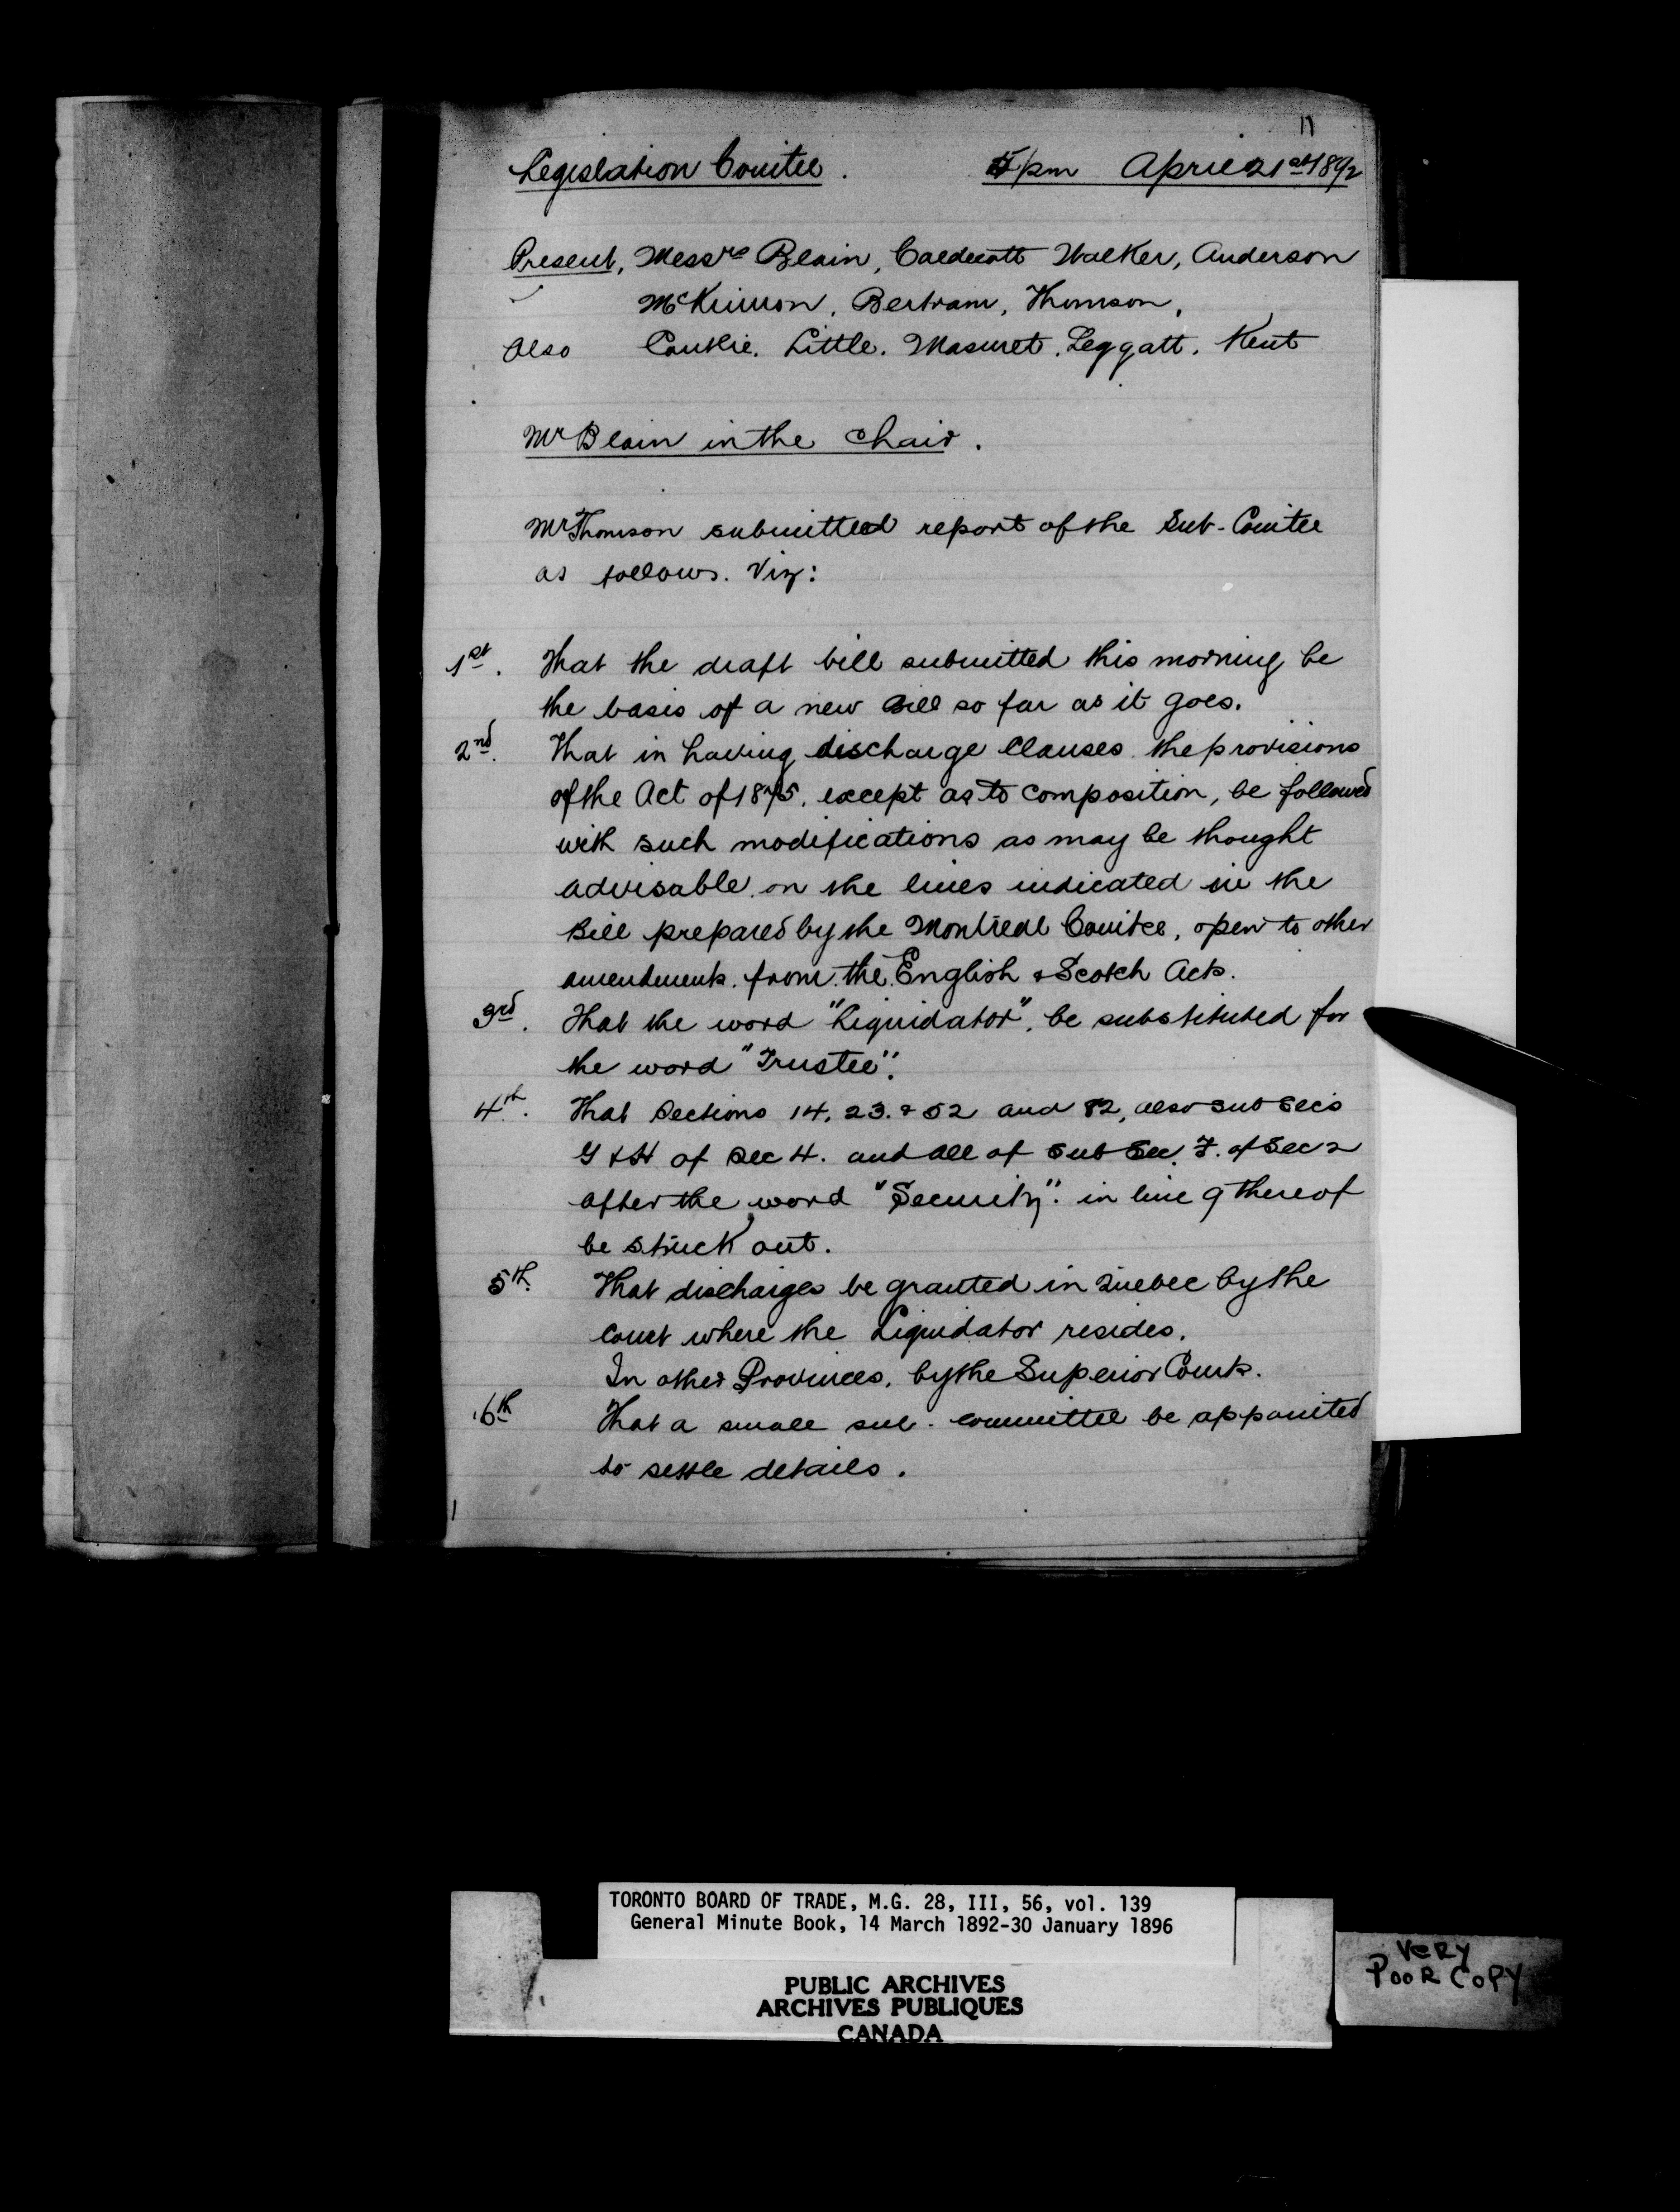 11
Legislation Comitee. 5 pm April 21st 1892
Present, Messrs Blain, Caldecott Walker, Anderson
McKinnon, Bertram, Thomson,
Also Conkie. Little. Masuret. Leggatt. Kent
Mr Blain in the Chair.
Mr Thomson submitted report of the Sub-Comitee
as follows. Viz:
1st. That the draft bill submitted this morning be
the basis of a new Bill so far as it goes.
2nd. That in having discharge Clauses the provisions
of the Act of 1875, except as to composition, be followed
with such modifications as may be thought
advisable on the lines indicated in the
Bill prepared by the Montreal Comitee, open to other
amendments. from the English & Scotch Acts.
3rd. That the word "Liquidator", be substituted for
the word "Trustee".
4th. That Sections 14, 23. & 52 and 82, also sub secs
G & H of Sec 4. and all of Sub Sec. F. of Sec 2
after the word "Security". in line 9 thereof
be struck out.
5th. That discharges be granted in Quebec by the
Court where the Liquidator resides.
In other Provinces, by the Superior Courts.
6th That a small sub-committee be appointed
to settle details.
TORONTO BOARD OF TRADE, M.G. 28, III, 56, vol. 139
General Minute Book, 14 March 1892-30 January 1896
PUBLIC ARCHIVES
ARCHIVES PUBLIQUES
CANADA
VERY
POOR COPY